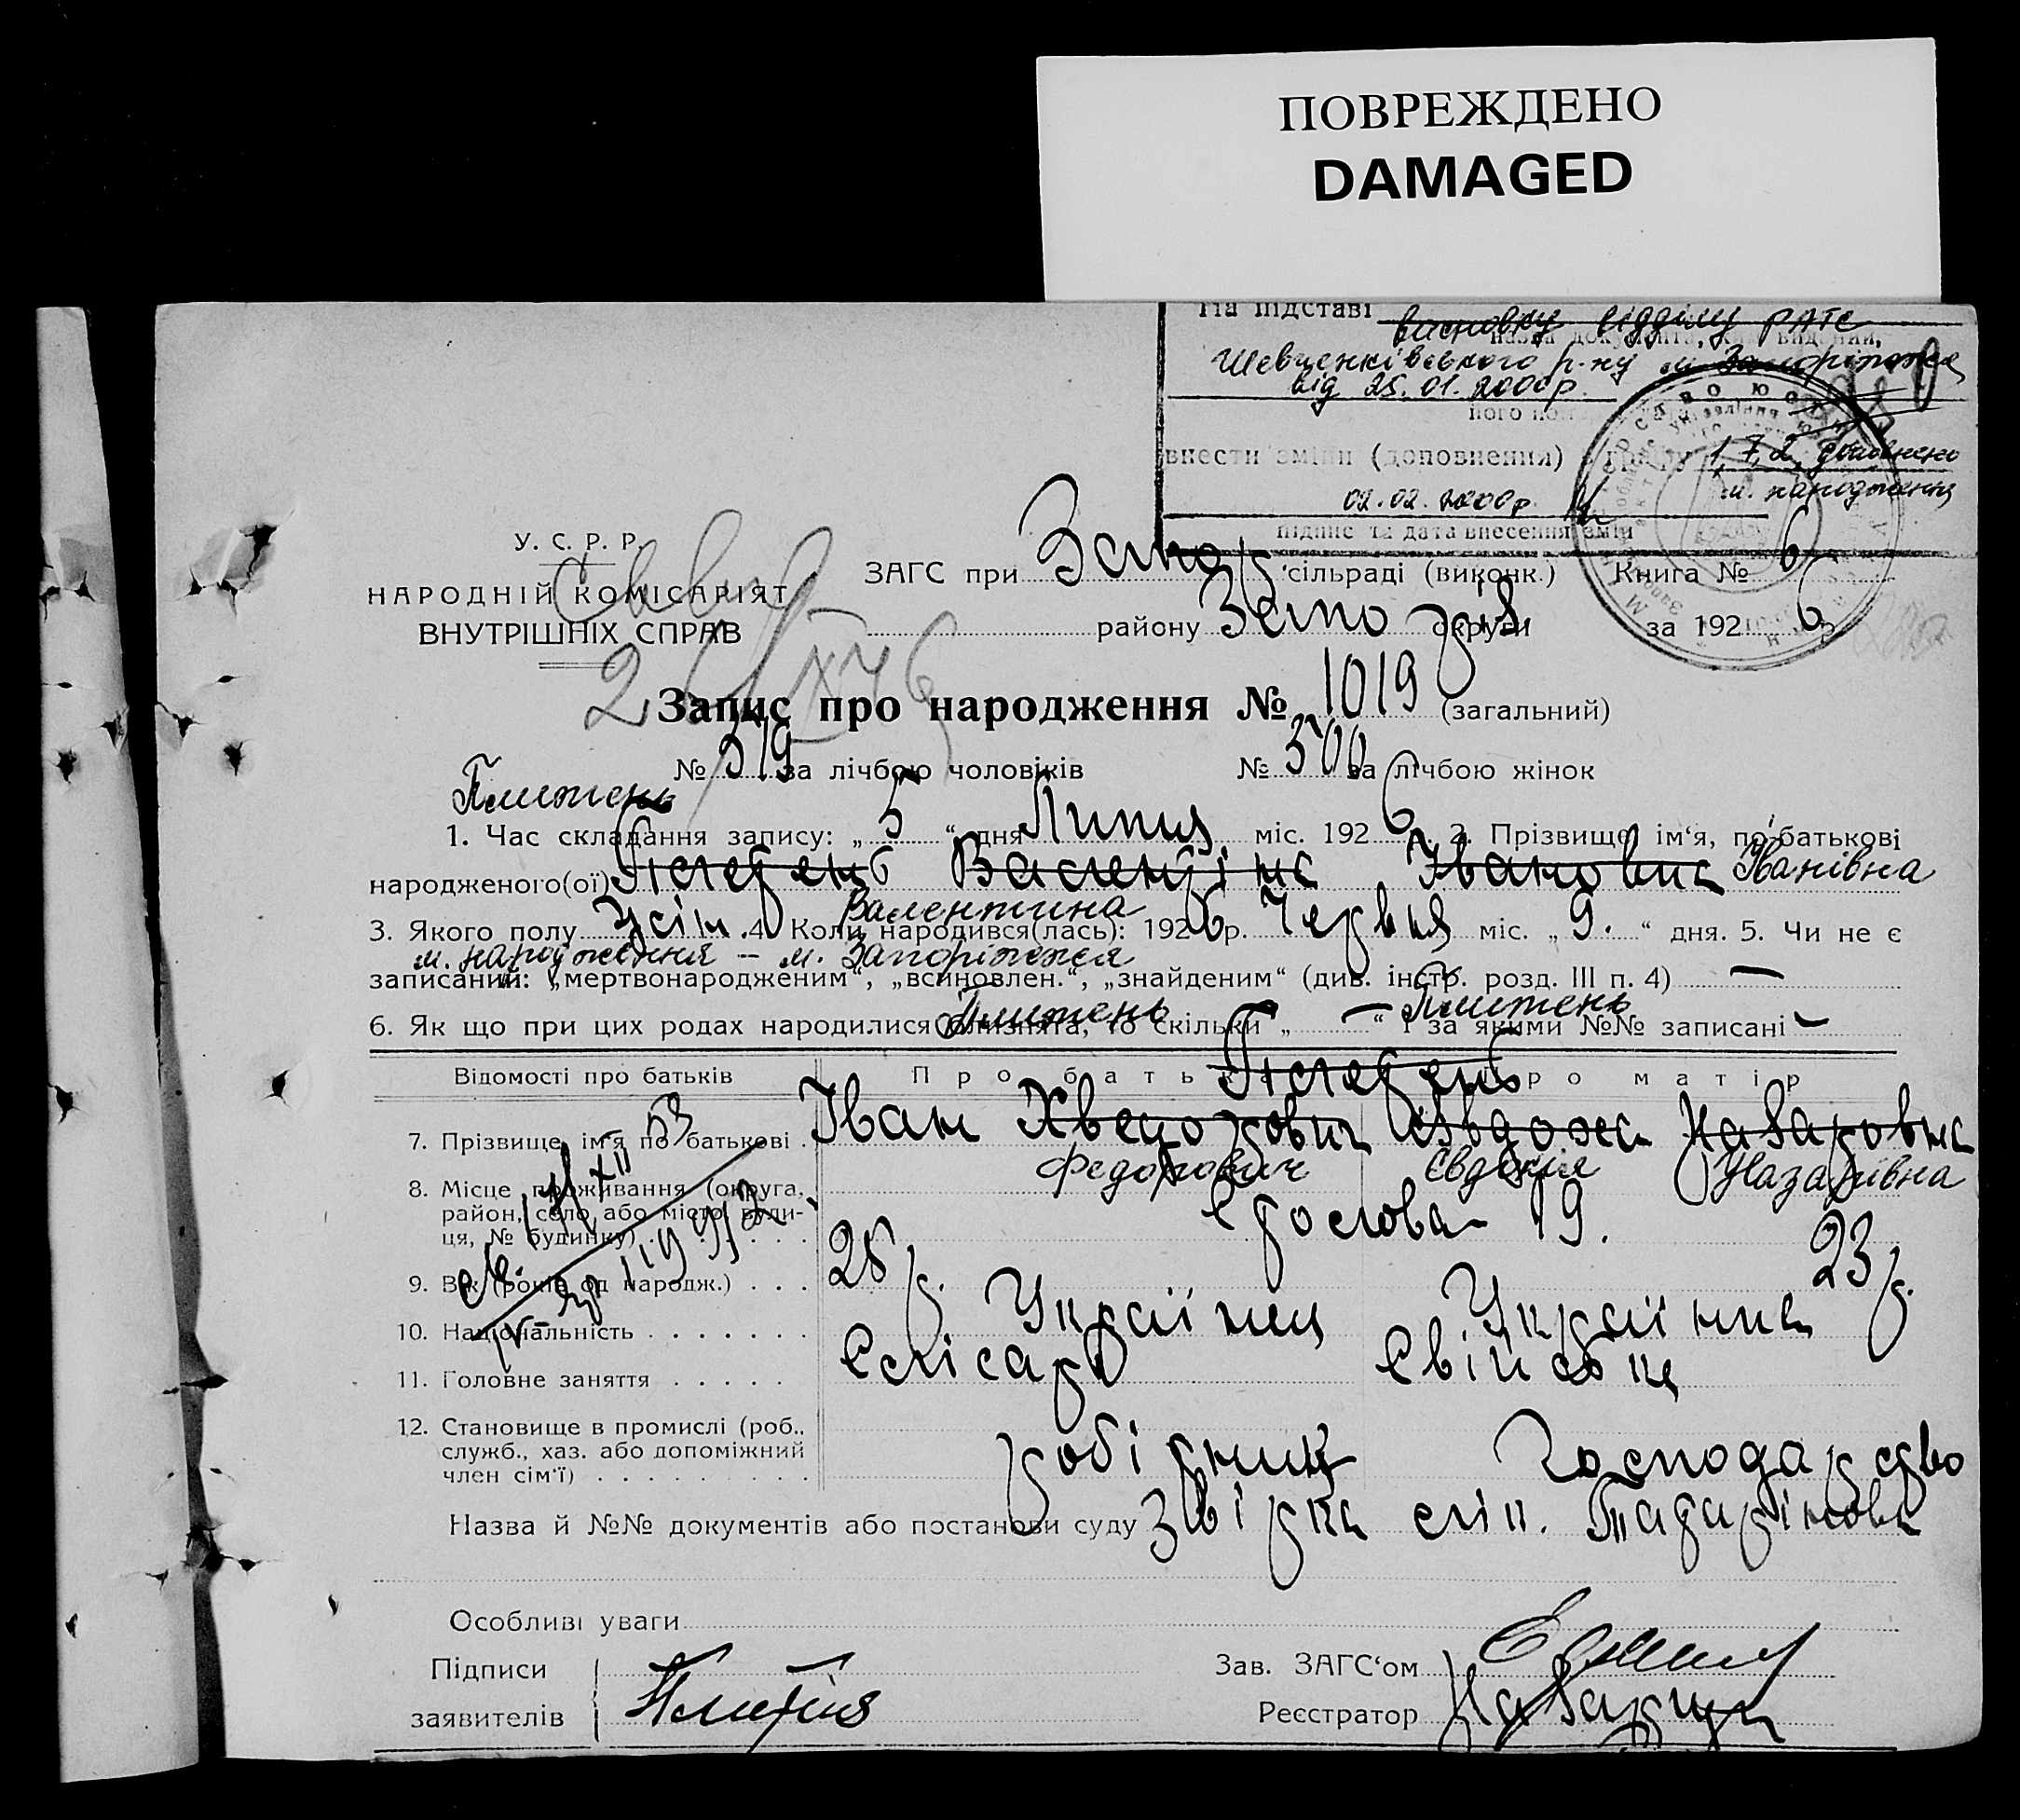 ПОВРЕЖДЕНО
DAMAGED
На підставі висновку відділу РАГС
назва документа, ким виданий,
Шевченківського р-ну м Запоріжжя
від 25.01.2000р.
внести зміни (доповнення) в графу 1, 7, 2, доповнено
м. народження
02.02.2000р.
підпис та дата внесення змін
У. С. Р. Р.
НАРОДНІЙ КОМІСАРІЯТ
ВНУТРІШНІХ СПРАВ
ЗАГС при Запор. сільраді (виконк.) Книга № 6
району Запоріж округи за 1926 р.
Запис про народження № 1019 (загальний)
№ 519 за лічбою чоловіків № 500 за лічбою жінок
Плитень
1. Час складання запису: „ 5 “ дня Липця міс. 1926 р. 2. Прізвище, ім‘я, по-батькові
народженого(ої) Валентіна Івановна Іванівна
Валентина
3. Якого полу жін. 4. Коли народився(лась): 1926 р. Червня міс. „ 9. “ дня. 5. Чи не є
м. народження – м. Запоріжжя
записаний: „мертвонародженим“, „всиновлен.“, „знайденим“ (див. інстр. розд. III п. 4) —
Плитень Плитень
6. Як що при цих родах народилися близнята, то скільки „ — “ і за якими №№ записані —
Відомості про батьків Про батька Про матір
7. Прізвище, ім‘я по батькові . Іван Хведорович Явдоха Назаровна
Федорович Євдокія Назарівна
8. Місце проживання (округа,
район, село або місто, вули-
ця, № будинку) . . . . 19.
9. Вік (років од народж.) . . . 25 р. 23 р.
10. Національність . . . . . . . Українец Українка
11. Головне заняття . . . . . Слісарь
12. Становище в промислі (роб.,
служб., хаз. або допоміжний
член сім‘ї) . . . . . . . . . робітник Господарство
Назва й №№ документів або постанови суду
Особливі уваги
Підписи
заявителів
Зав. ЗАГС‘ом
Реєстратор